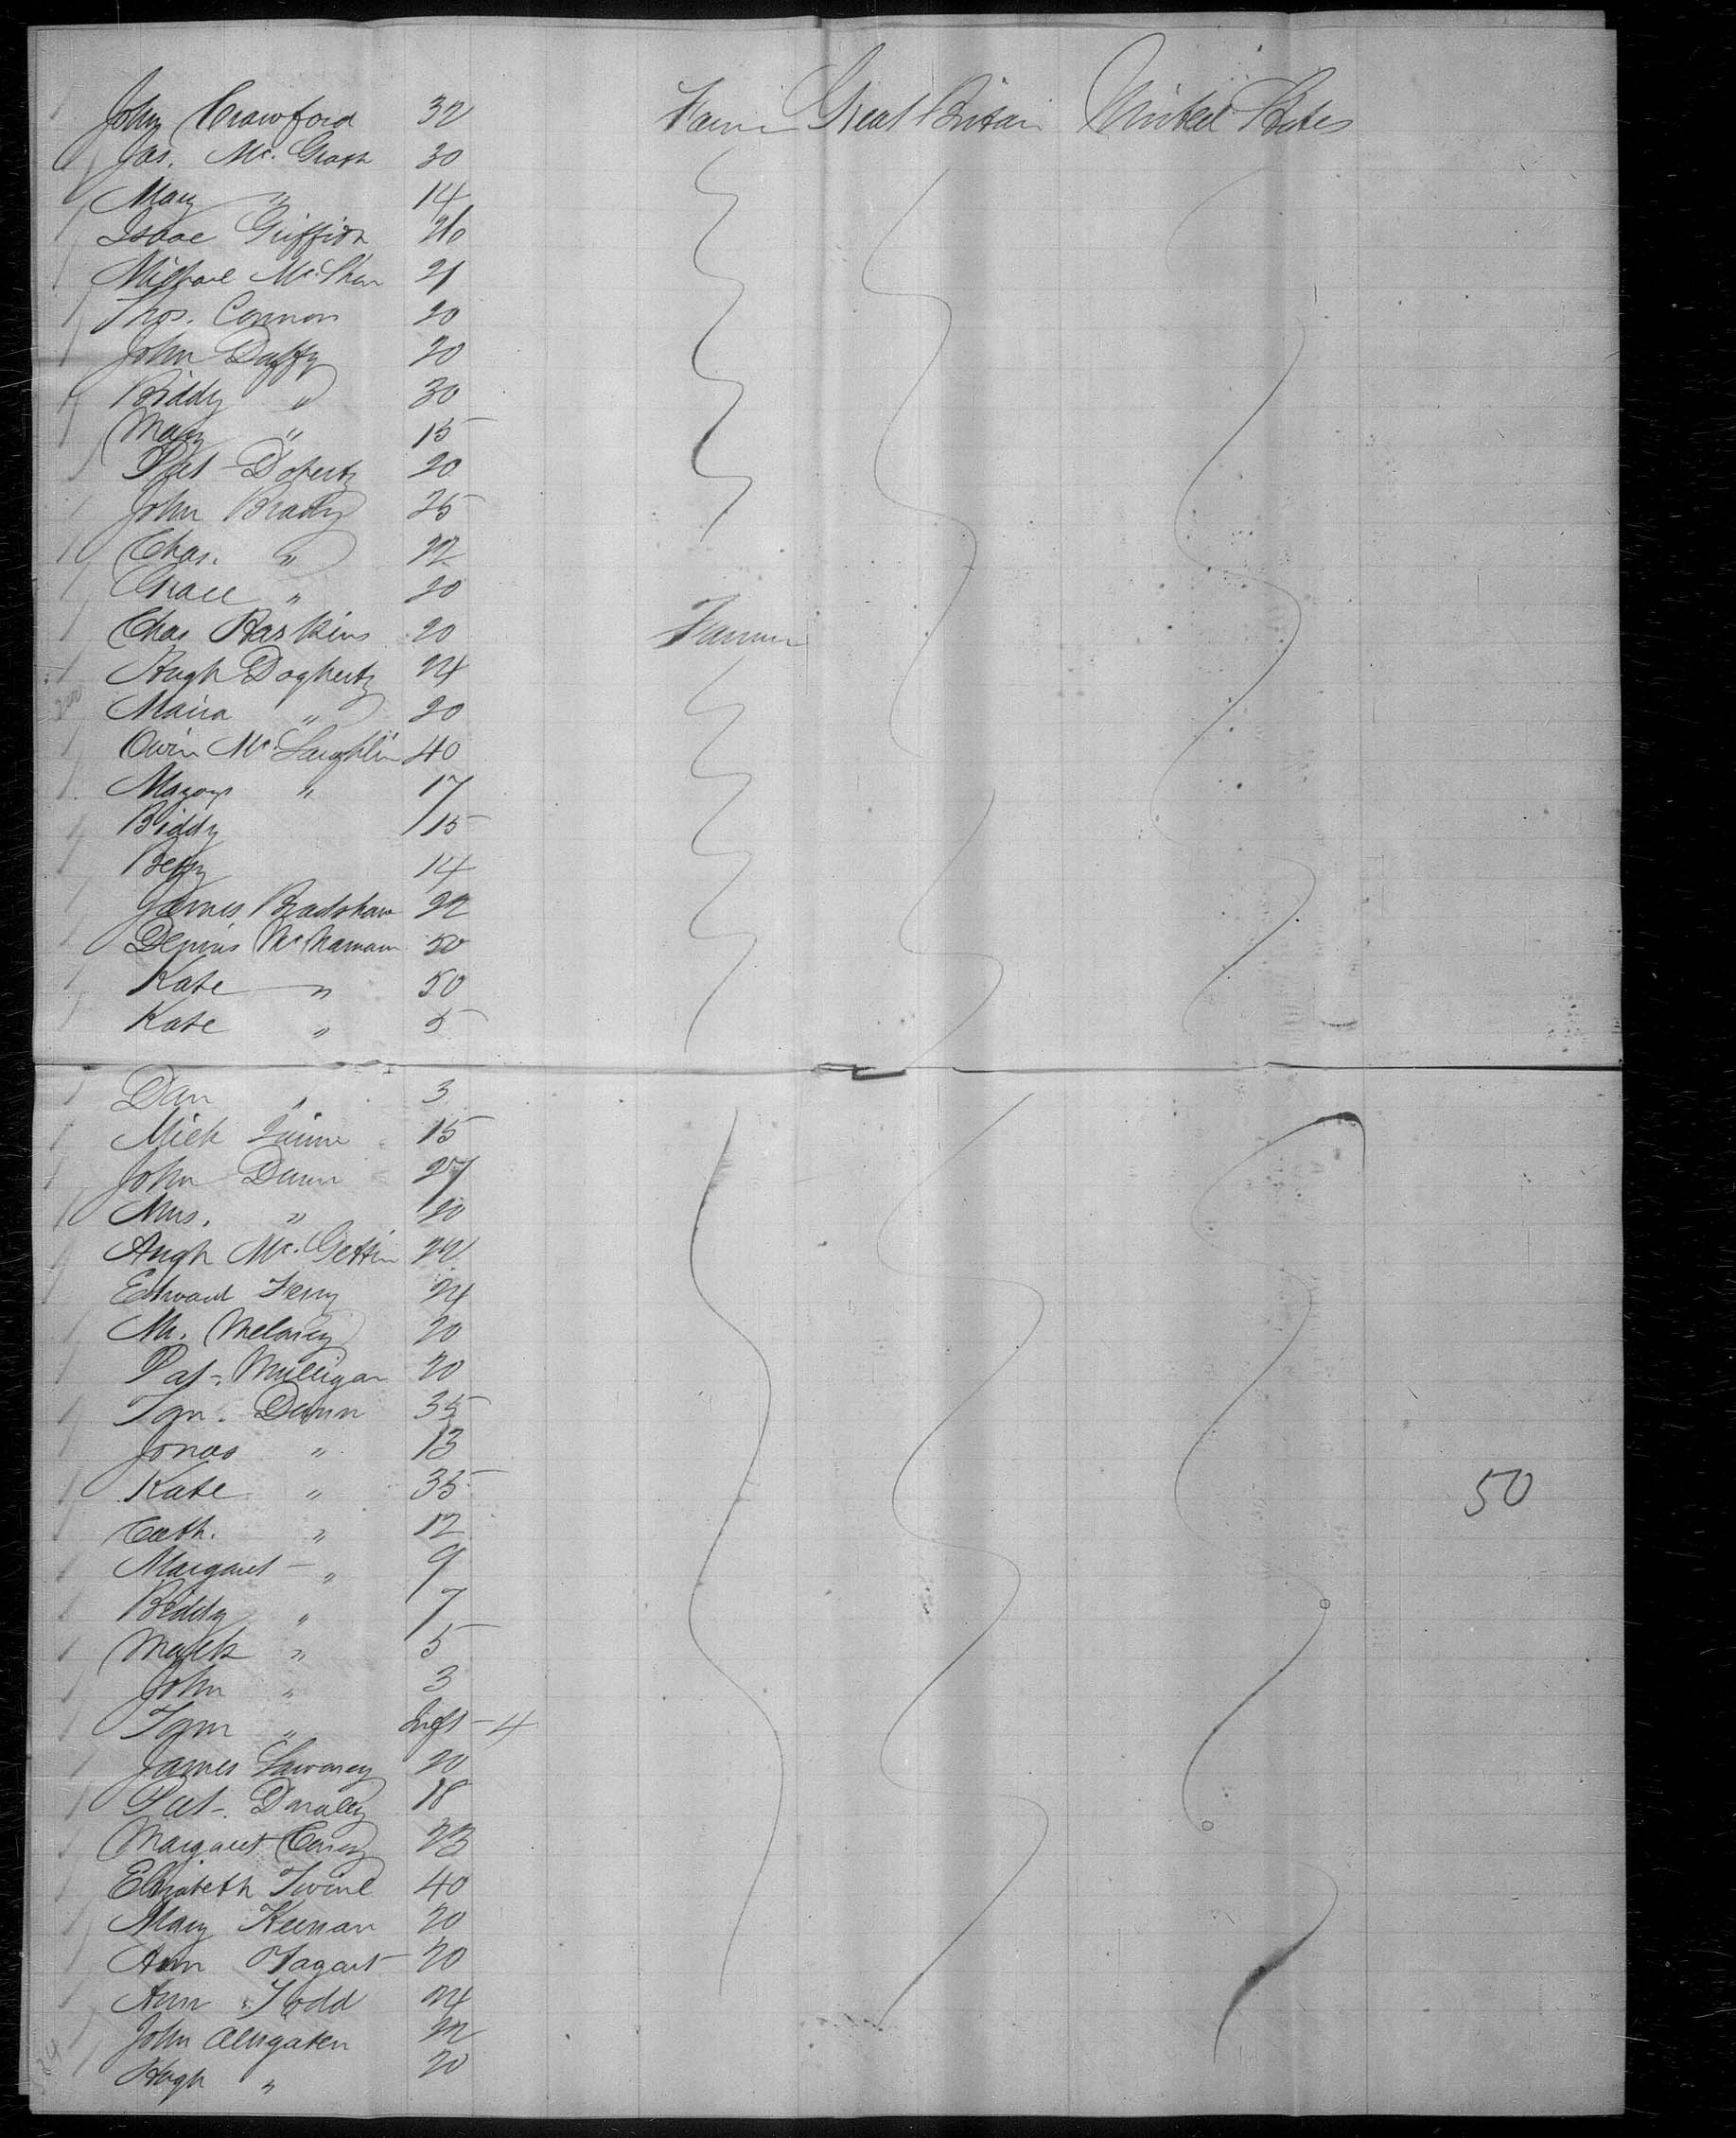 John Crawford 32 Farmer Great Britain United States
Jas. Mc. Grath 30
Mary " 14
Isaac Griffith 26
Michael Mc 21
Thos. Connor 20
John Duffy 20
Biddy " 30
Mary " 15
Pat Doherty 20
John Brady 25
Chas. " 22
Grace " 20
Chas Haskins 20 Farmer
Hugh Dogherty 24
Maria " 20
Owin Mc. Laughlin 40
" 17
Biddy 15
Betty 14
James Bradshaw 22
Dennis McNamara 50
Kate " 50
Kate " 5
Dan " 3
Mick 15
John Dunn 27
Mrs. " 20
Hugh Mc. Gettin 22
Edward Ferry 24
20
Pat Mulligan 20
Tom. Dunn 35
Jonas " 13
Kate " 35
Cath. " 12
Margaret " 9
Biddy " 7
Mark " 5
John " 3
Tom " Inft - 4
James 20
Pat. 18
Margaret 23
Elizabeth 40
Mary Keenan 20
Ann Tagart 20
Ann Todd 24
John 22
Hugh " 20
50